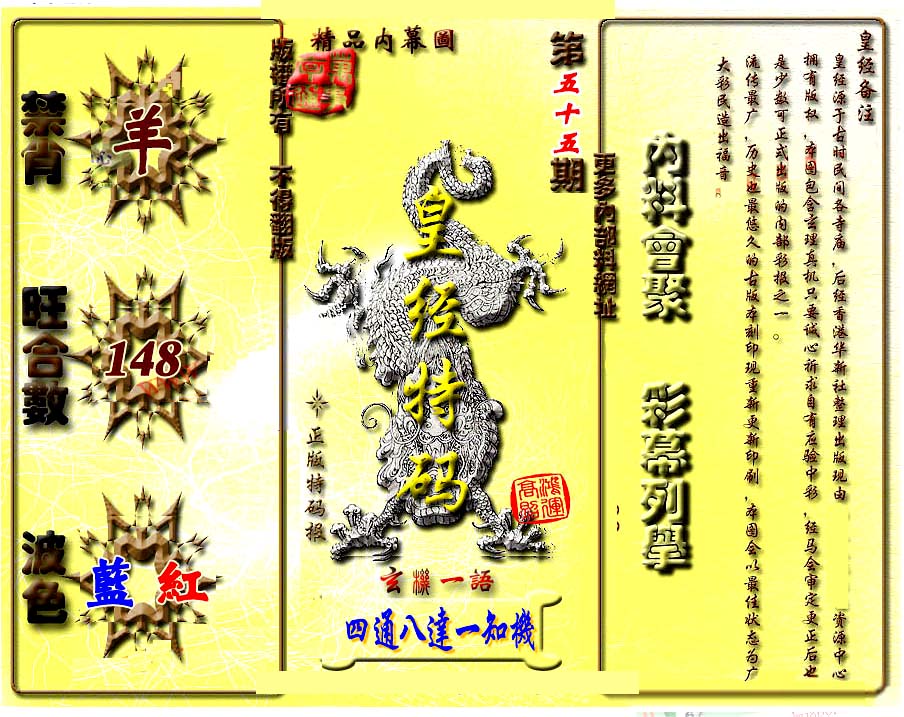 精品内幕圖
第五十五期
版權所有 不得翻版
更多內部料網址
禁肖
羊
旺合數
148
波色
藍 紅
皇经特码
正版特码报
鴻運
高照
玄機一語
四通八達一知機
内料會聚
彩幕列舉
皇经备注
皇经源于古时民间各寺庙,后经香港华新社整理出版现由 资源中心
拥有版权,本图包含玄理真机只要诚心祈求自有应验中彩,经马会审定更正后也
是少数可正式出版的内部彩报之一。
流传最广,历史也最悠久的古版本刻印现重新更新印刷,本图会以最佳状态为广
大彩民造出福音